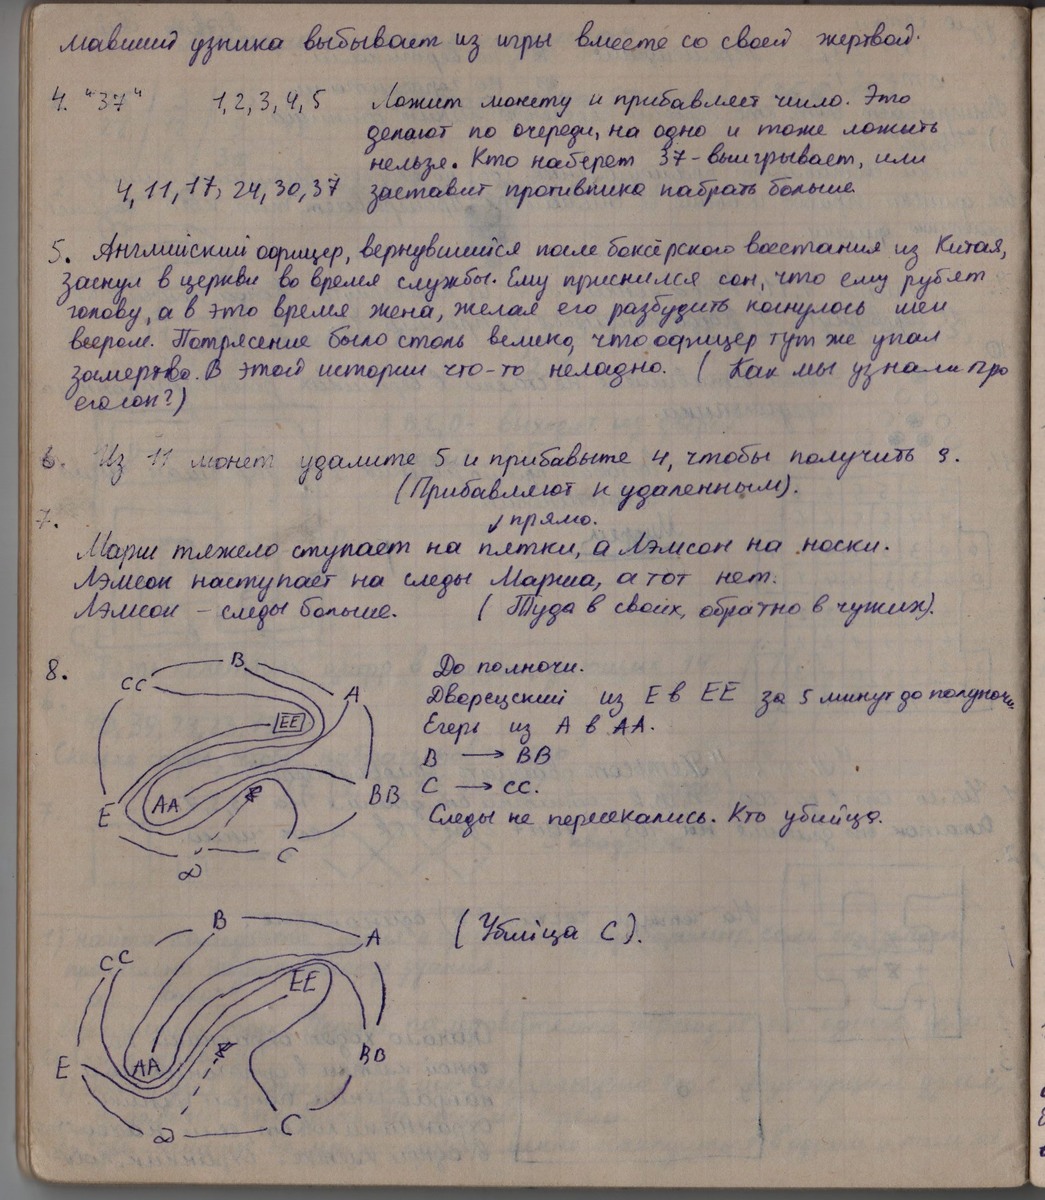 мавший узника выбывает из игры вместе со своей жертвой.
4. "37" 1, 2, 3, 4, 5 Ложит монету и прибавляет число. Это
делают по очереди, на одно и тоже ложить
нельзя. Кто наберет 37 - выигрывает, или
4, 11, 17, 24, 30, 37 заставит противника набрать больше
5. Английский офицер, вернувшийся после боксёрского восстания из Китая,
заснул в церкви во время службы. Ему приснился сон, что ему рубят
голову, а в это время жена, желая его разбудить коснулось шеи
веером. Потрясение было столь велико, что офицер тут же упал
замертво. В этой истории что-то неладно. (Как мы узнали про
его сон?)
6. Из 11 монет удалите 5 и прибавьте 4, чтобы получить 9.
(Прибавляют к удаленным).
7.
прямо.
Марш тяжело ступает на пятки, а Лэмсон на носки.
Лэмсон наступает на следы Марша, а тот нет.
Лэмсон - следы больше. (Туда в своих, обратно в чужих).
8. B
CC A
EE
E AA BB
C
До полночи.
Дворецкий из E в EE за 5 минут до полуночи
Егерь из A в AA.
B → BB
C → CC.
Следы не пересекались. Кто убийца.
B
CC A
EE
E AA BB
C
(Убийца C).